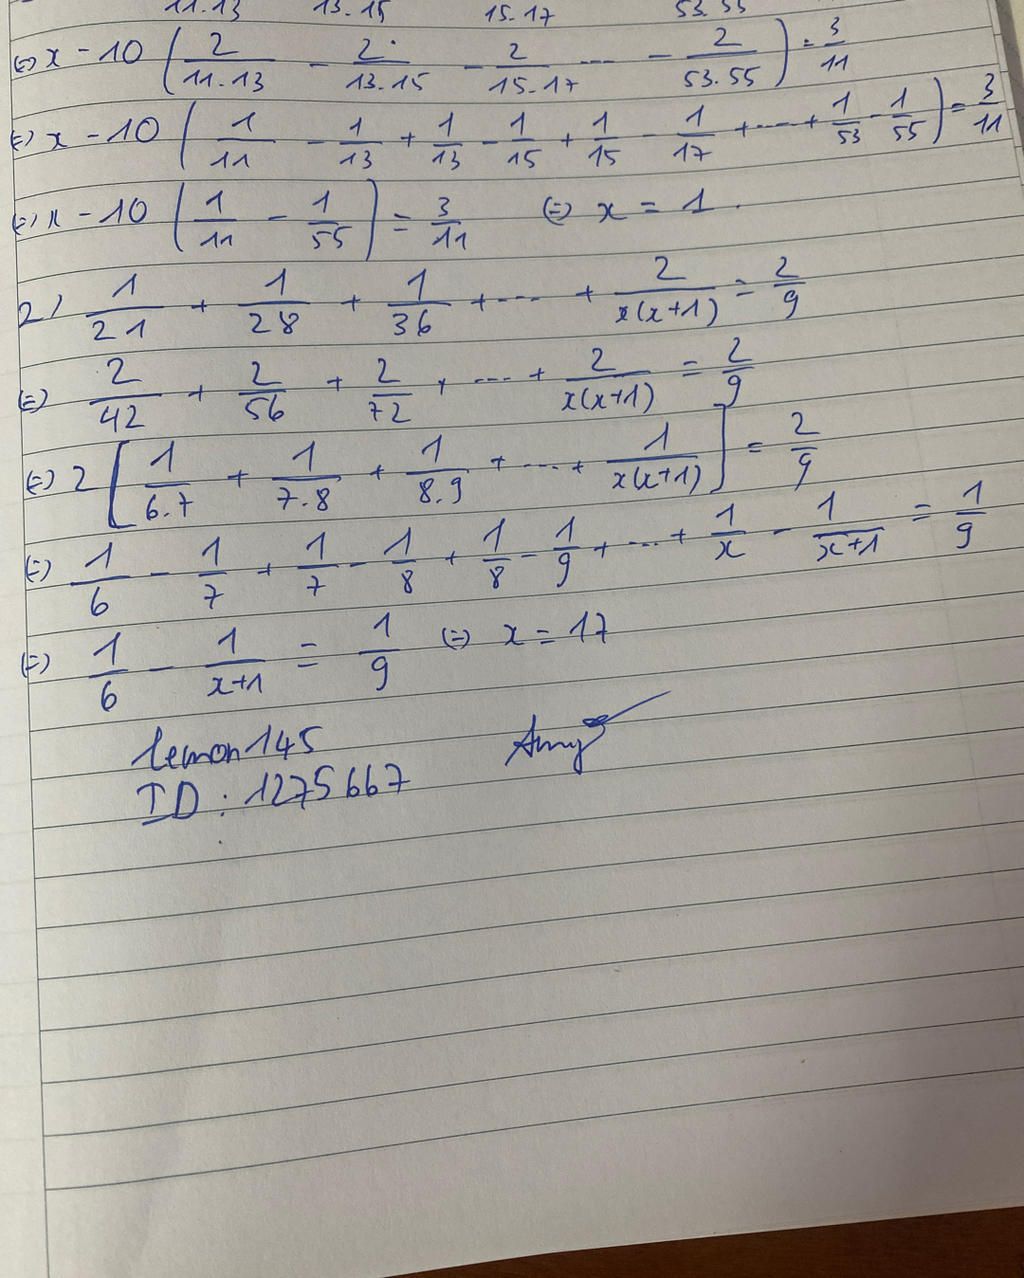 11.13 13.15 15.17 53.55
⇔ x - 10 ( 2/11.13 - 2/13.15 - 2/15.17 ... - 2/53.55 ) = 3/11
⇔ x - 10 ( 1/11 - 1/13 + 1/13 - 1/15 + 1/15 - 1/17 + ... + 1/53 - 1/55 ) = 3/11
⇔ x - 10 ( 1/11 - 1/55 ) = 3/11 ⇔ x = 1.
2) 1/21 + 1/28 + 1/36 + ... + 2/x(x+1) = 2/9
⇔ 2/42 + 2/56 + 2/72 + ... + 2/x(x+1) = 2/9
⇔ 2 [ 1/6.7 + 1/7.8 + 1/8.9 + ... + 1/x(x+1) ] = 2/9
⇔ 1/6 - 1/7 + 1/7 - 1/8 + 1/8 - 1/9 + ... + 1/x - 1/x+1 = 1/9
⇔ 1/6 - 1/x+1 = 1/9 ⇔ x = 17
lemon145
ID : 1275667